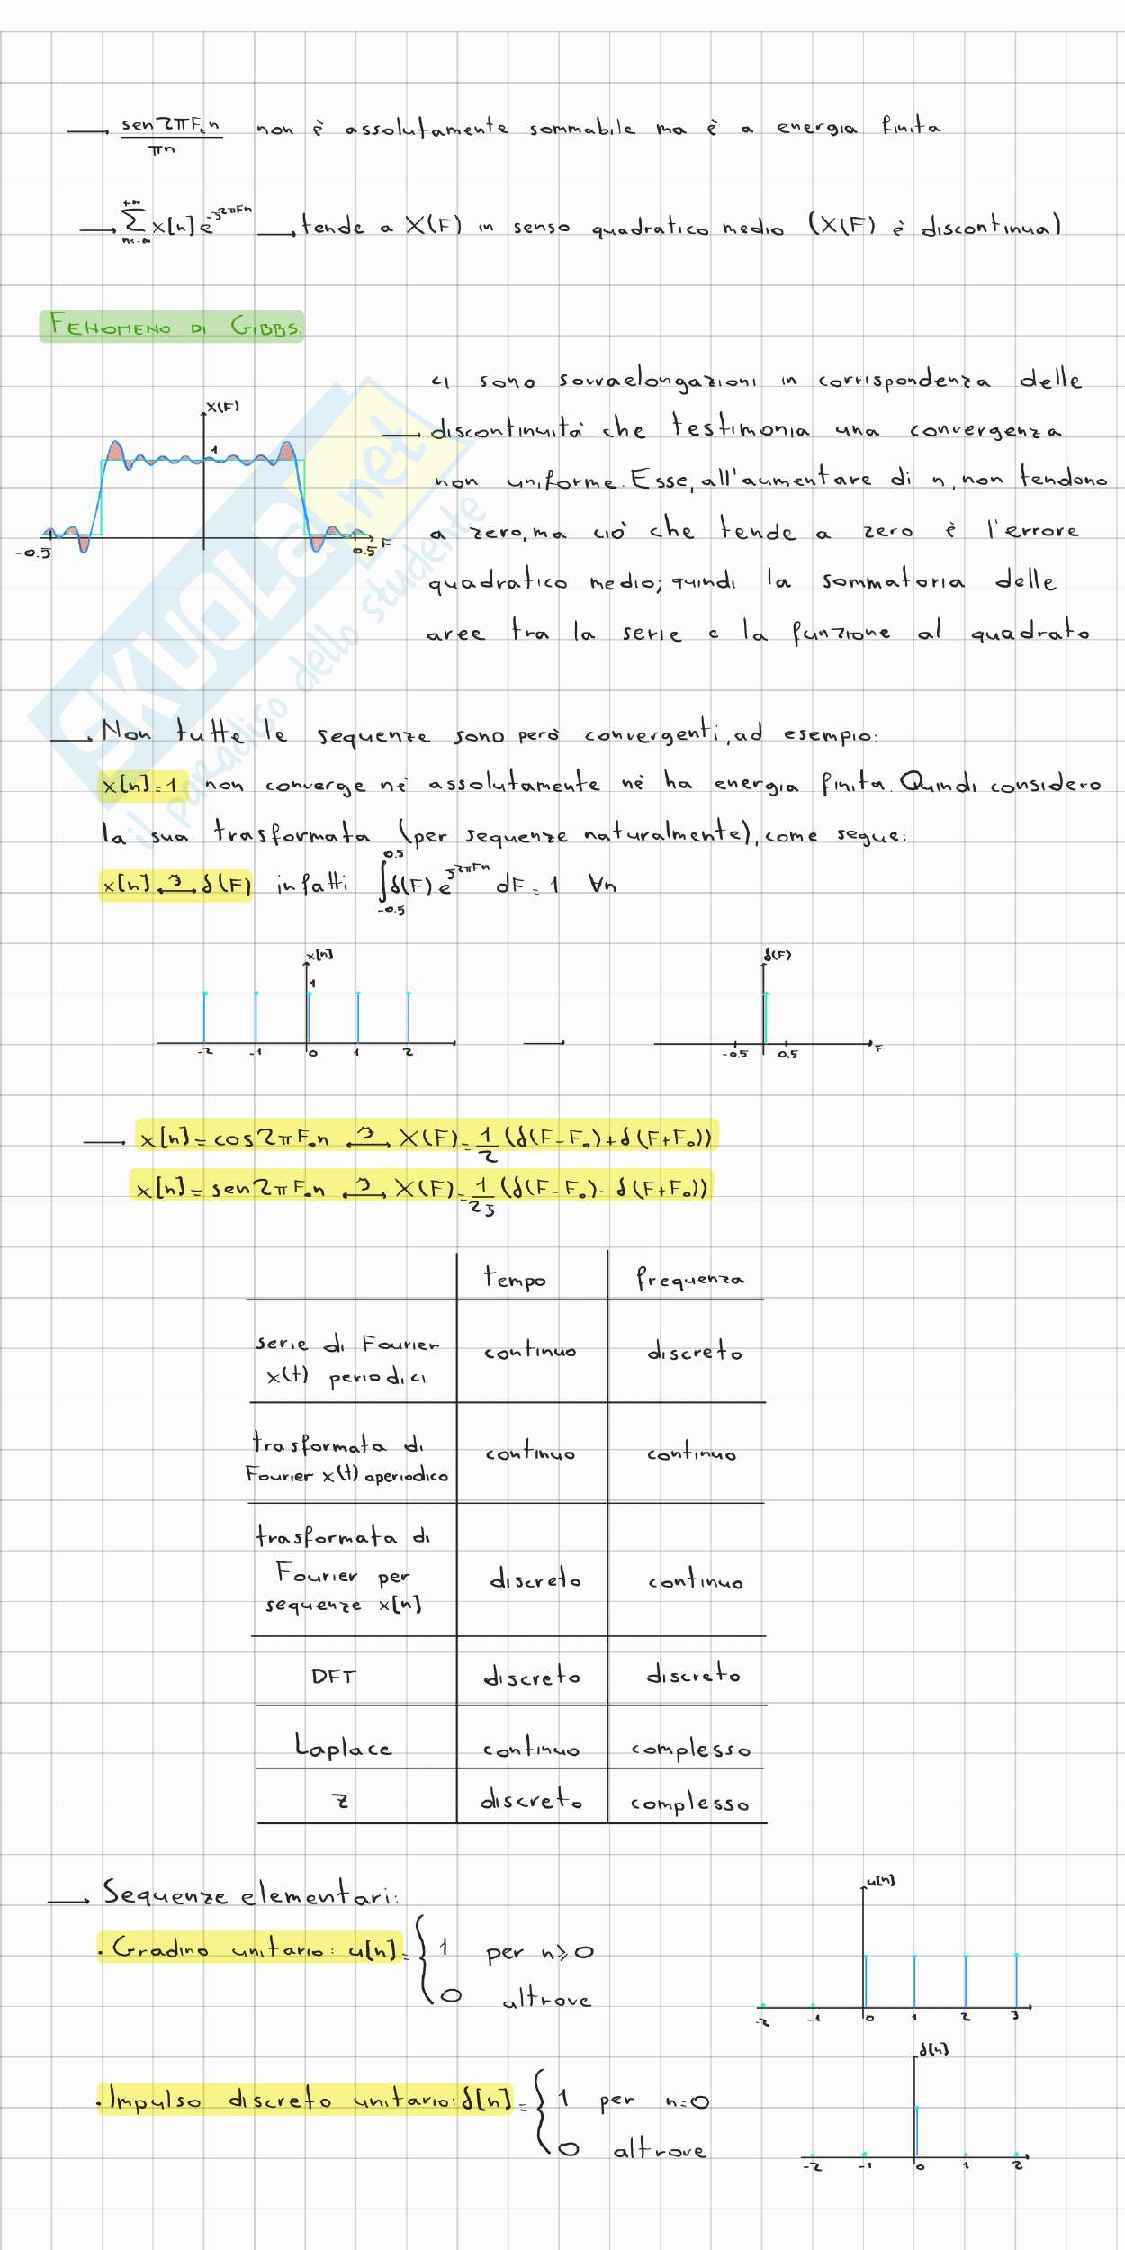 → sen2πF₀n / πn non è assolutamente sommabile ma è a energia finita
→ +∞ Σ n=-∞ x[n] e^-j2πFn → tende a X(F) in senso quadratico medio (X(F) è discontinua)
FENOMENO DI GIBBS:
X(F)
1
-0.5
0.5 F
→ ci sono sovraelongazioni in corrispondenza delle
discontinuità che testimonia una convergenza
non uniforme. Esse, all'aumentare di n, non tendono
a zero, ma ciò che tende a zero è l'errore
quadratico medio; quindi la sommatoria delle
aree tra la serie e la funzione al quadrato
SKUOLA.net
il paradiso dello studente
→ Non tutte le sequenze sono però convergenti, ad esempio:
x[n]=1 non converge nè assolutamente nè ha energia finita. Quindi considero
la sua trasformata (per sequenze naturalmente), come segue:
x[n] ↔ δ(F) infatti ∫ -0.5 0.5 δ(F) e^j2πFn dF = 1 ∀n
x[n]
1
-2 -1 0 1 2
→
δ(F)
-0.5 0.5 F
→ x[n] = cos2πF₀n ↔ X(F) = 1/2 (δ(F-F₀)+δ(F+F₀))
x[n] = sen2πF₀n ↔ X(F) = 1/2j (δ(F-F₀)-δ(F+F₀))
tempo frequenza
serie di Fourier x(t) periodici continuo discreto
trasformata di Fourier x(t) aperiodico continuo continuo
trasformata di Fourier per sequenze x[n] discreto continuo
DFT discreto discreto
Laplace continuo complesso
z discreto complesso
→ Sequenze elementari:
• Gradino unitario: u[n] = { 1 per n≥0
0 altrove
u[n]
-2 -1 0 1 2 3
• Impulso discreto unitario: δ[n] = { 1 per n=0
0 altrove
δ[n]
-2 -1 0 1 2